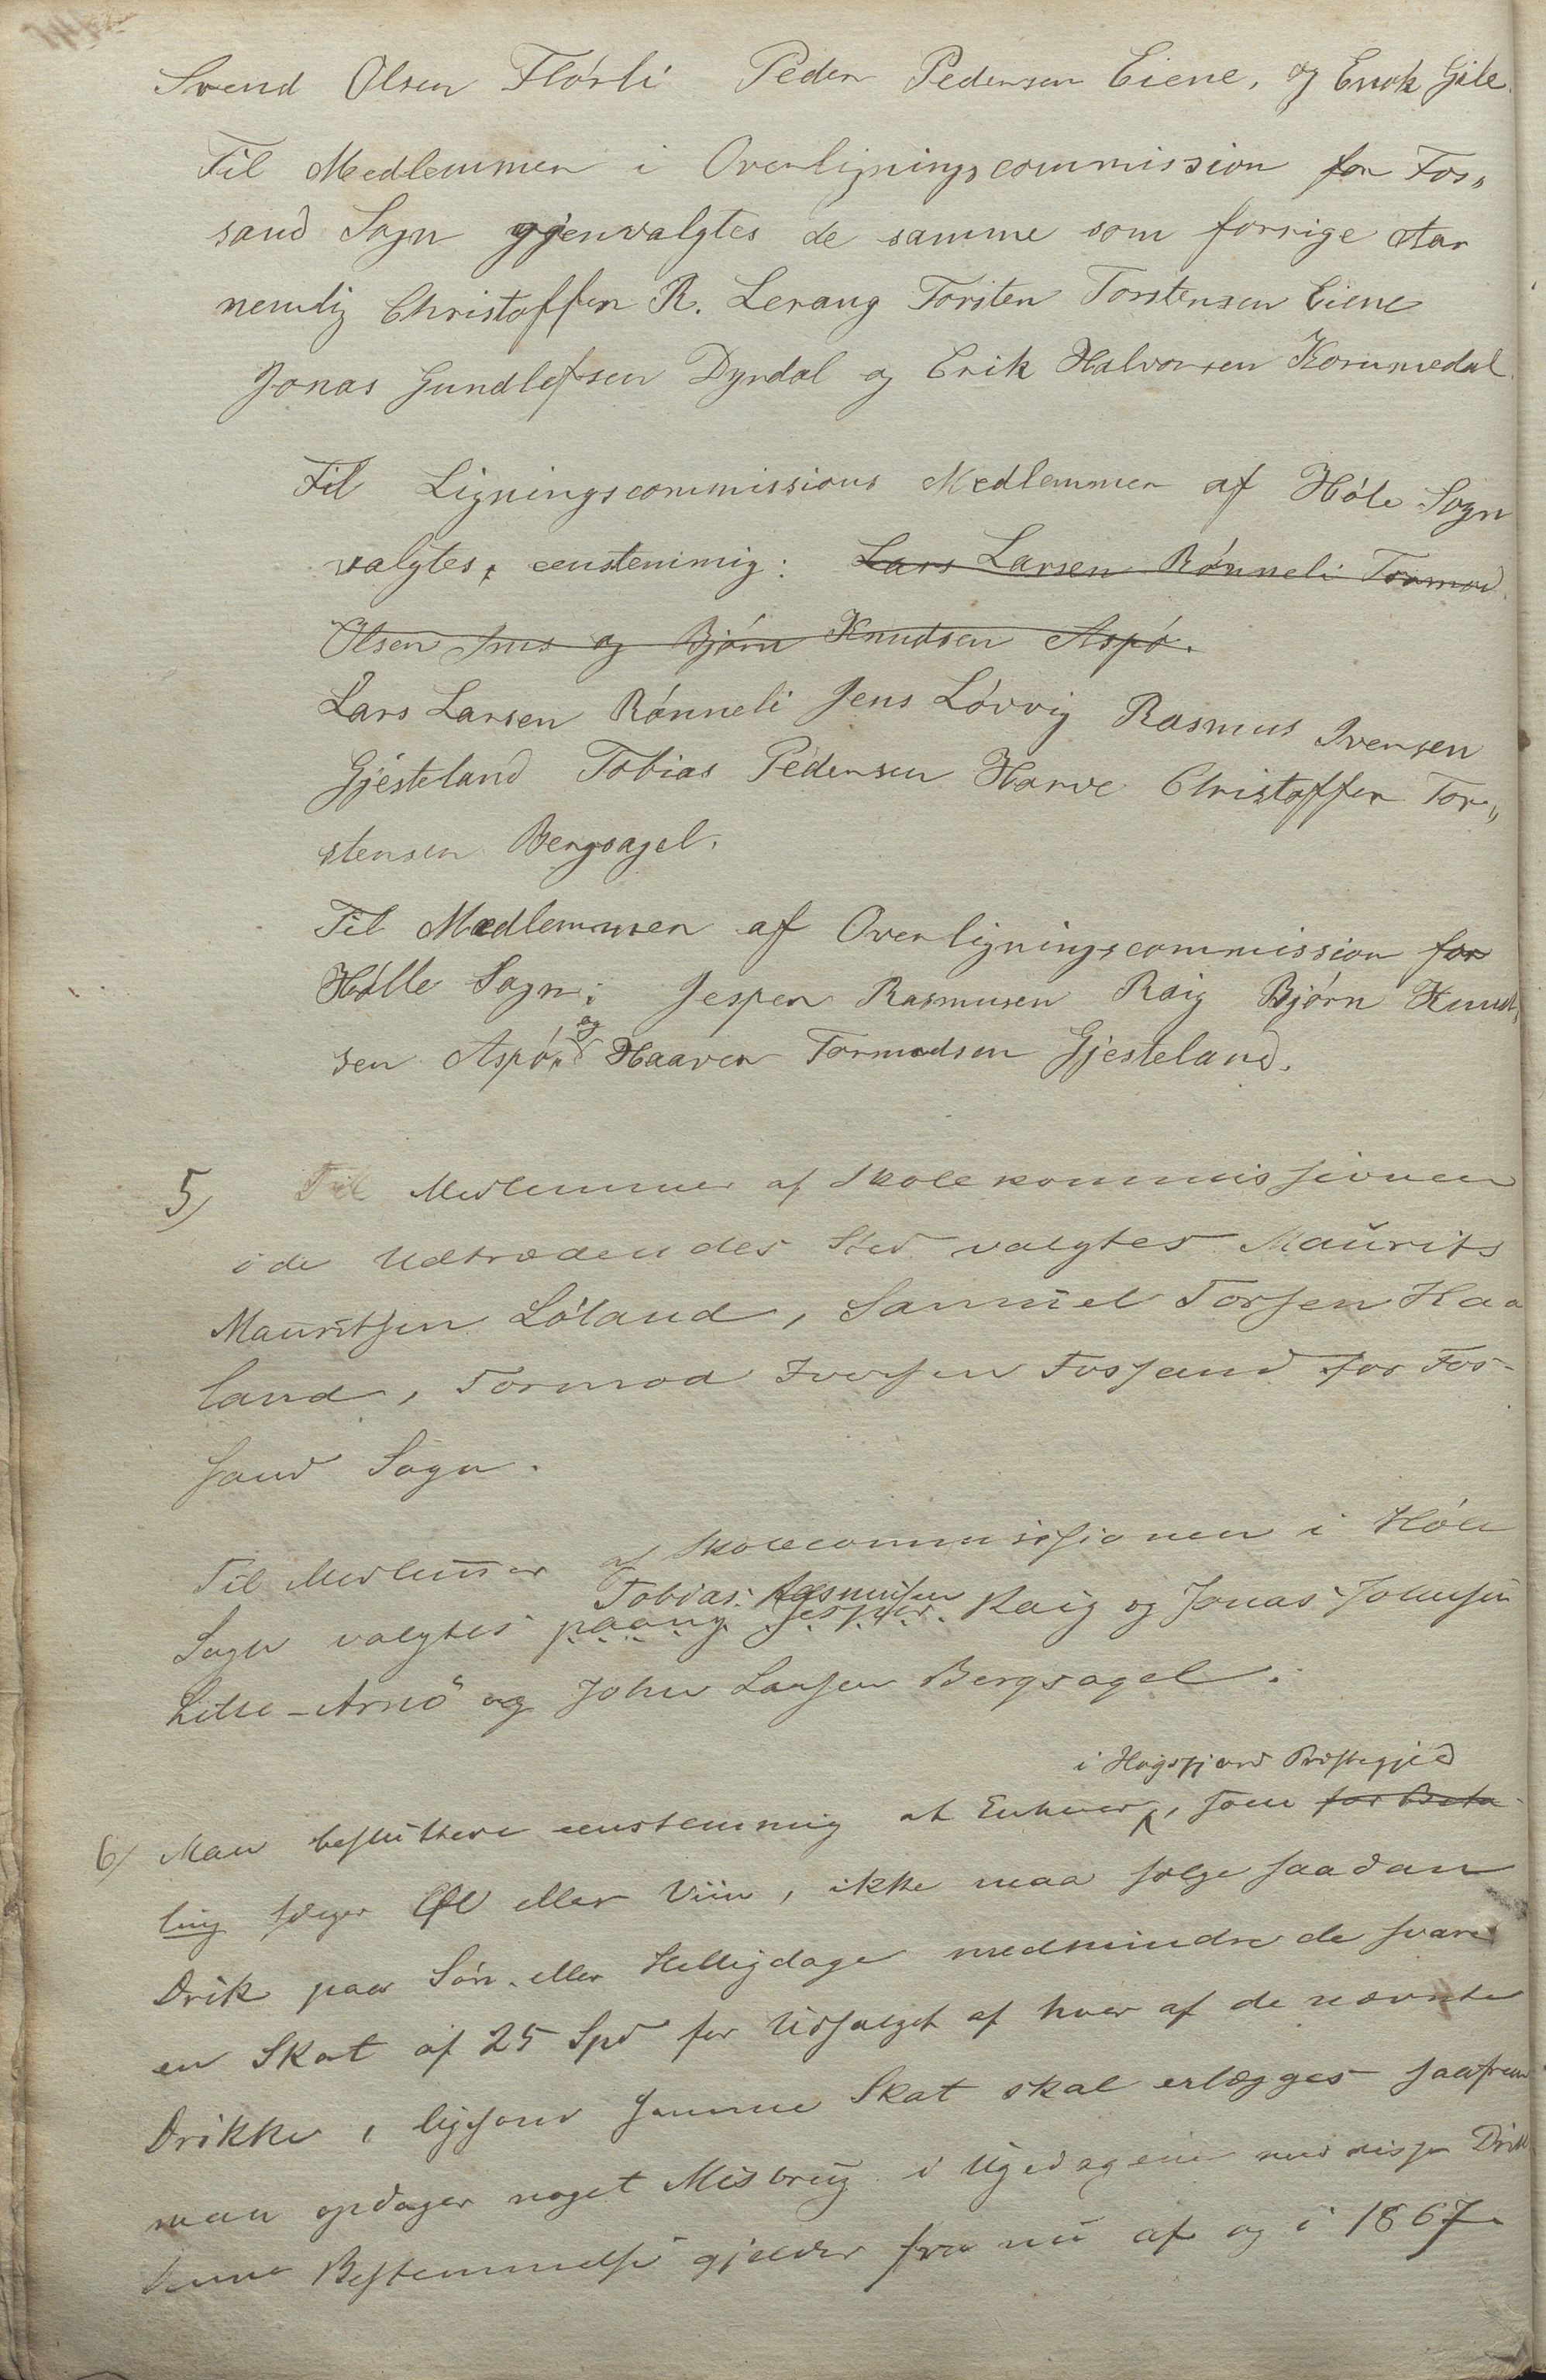 Svend Olsen Flórli Peder Pedersen Eiene, og Enok Gile.
Til Medlemmer i Overligningscommission for Fos„
sand Sogn gjenvalgtes de samme som forrige Aar
nemlig Christoffer R. Lerang Torsten Torstensen Eiene
Jonas Gundlefsen Dyrdal og Erik Halvorsen Kommedal.
Til Ligningscommissions Medlemmer af Hóle Sogn
valgtes, eenstemmig: Lars Larsen Rónneli Tormod
Olsen Ims og Bjórn Knudsen Aspó.
Lars Larsen Rónneli Jens Lóvvig Rasmus Iversen
Gjesteland Tobias Pedersen Harve Christoffer Tor„
stensen Bergsagel.
Til Medlemmer af Overligningscommission for
Hólle Sogn: Jesper Rasmusen Raig Bjórn Knud„
sen Aspó, og Haaver Tormodsen Gjesteland.
5) Til Medlemmer af Skolekommissionen
i de Udtrædendes Sted valgtes Maurits
Mauritsen Lóland, Samuel Torsen Haa
land, Tormod Iversen Fossand for Fos-
sand Sogn.
Til Medlemmer af Skolecommissionen i Hóle
Tobias Rasmusen
Sogn valgtes paany Jesper Raig og Jonas Johnsen
Litle-Arnö og John Larsen Bergsagel.
i Högsfjord Præstegjed
6) Man besluttede eenstemmig at Enhver, som for Beta-
ling sælger Øl eller Viin, ikke maa sælge saadan
Drik paa Sön- eller Helligdage medmindre de svare
en Skat af 25 Spd for Udsalget af hver af de nævnte
Drikke, ligesom samme Skat skal erlægges saafremt
man opdager noget Misbrug i Ugedagene med disse Drikke
Denne Bestemmelse gjælder fra nu af og i 1867.